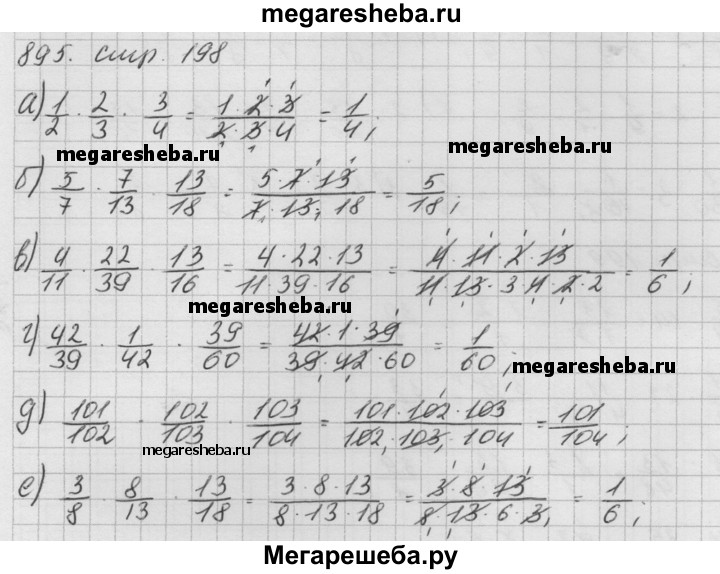 megaresheba.ru
895. стр. 198
а) 1/2 · 2/3 · 3/4 = 1·2·3/2·3·4 = 1/4;
megaresheba.ru megaresheba.ru
б) 5/7 · 7/13 · 13/18 = 5·7·13/7·13·18 = 5/18;
в) 4/11 · 22/39 · 13/16 = 4·22·13/11·39·16 = 4·11·2·13/11·13·3·4·2·2 = 1/6;
megaresheba.ru
г) 42/39 · 1/42 · 39/60 = 42·1·39/39·42·60 = 1/60;
megaresheba.ru
д) 101/102 · 102/103 · 103/104 = 101·102·103/102·103·104 = 101/104;
megaresheba.ru
е) 3/8 · 8/13 · 13/18 = 3·8·13/8·13·18 = 3·8·13/8·13·6·3 = 1/6;
Мегарешеба.ру